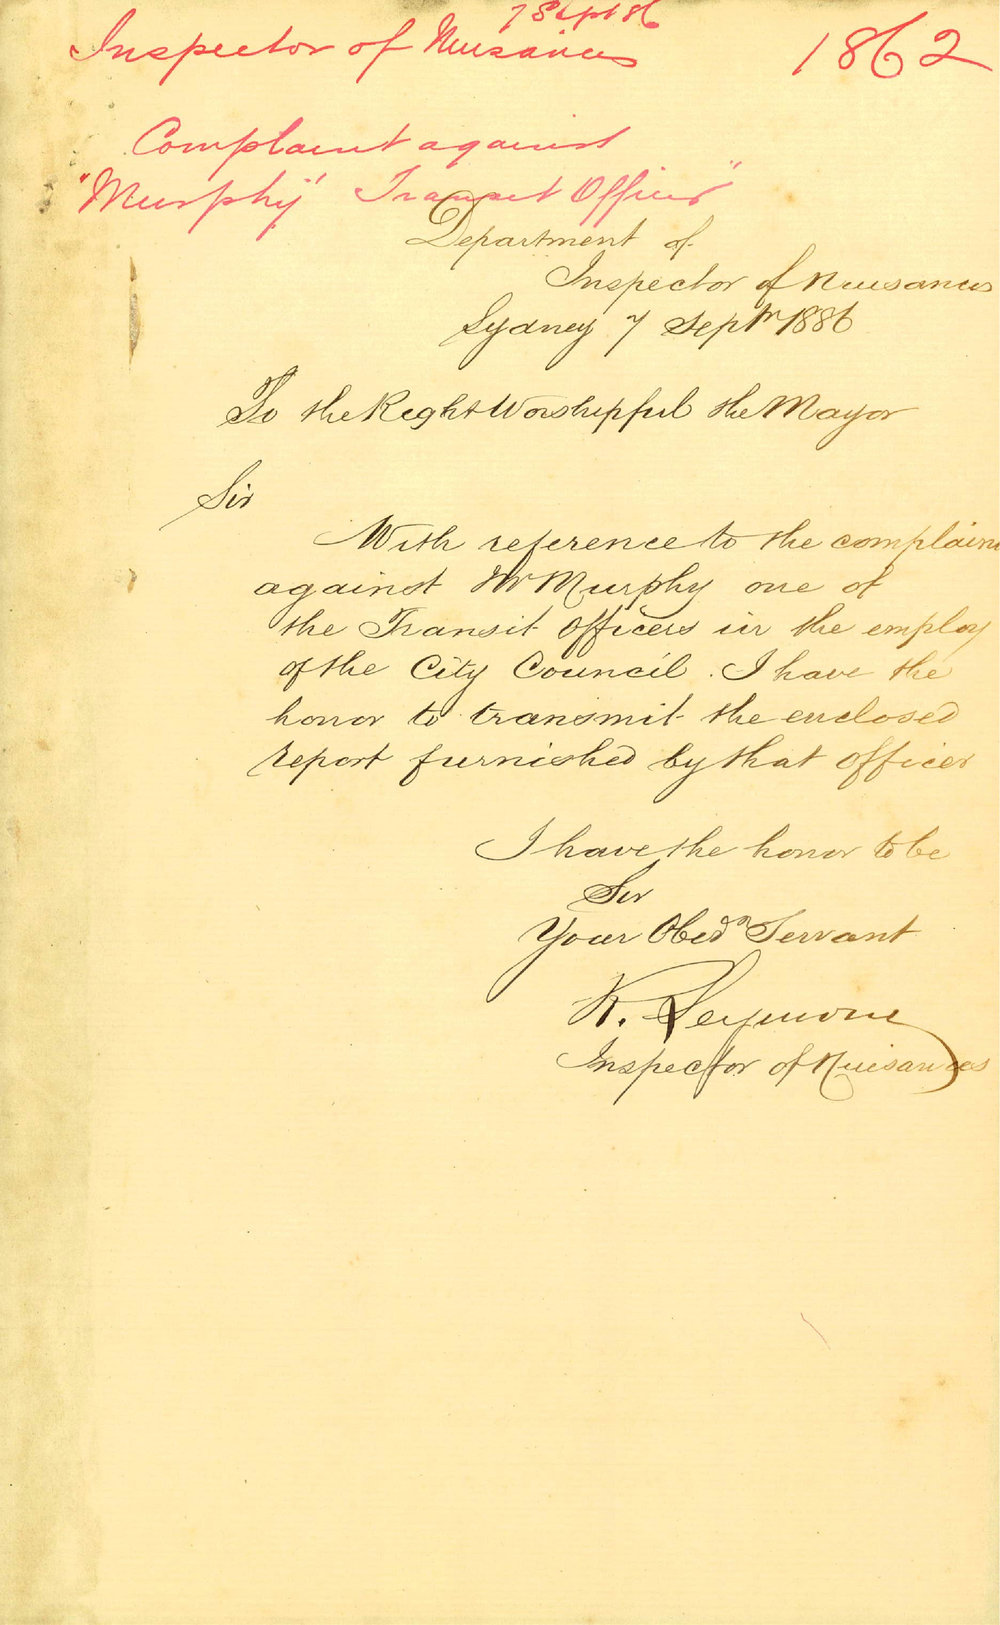 7 Sept 86
Inspector of Nuisances 1862
Complaint against
"Murphy" Transit Officer"
Department of
Inspector of Nuisances
Sydney 7 Septr 1886
To the Right Worshipful the Mayor
Sir
With reference to the complain
against Mr Murphy one of
the Transit Officers in the employ
of the City Council. I have the
honor to transmit the enclosed
report furnished by that officer
I have the honor to be
Sir
Your Obed Servant
R. Seymour
Inspector of Nuisances